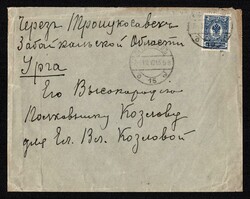 Черезъ Троицкосавскъ
Забайкальской Области
Урга
Его Высокородію
Полковнику Козлову
для Ел. Вл. Козловой